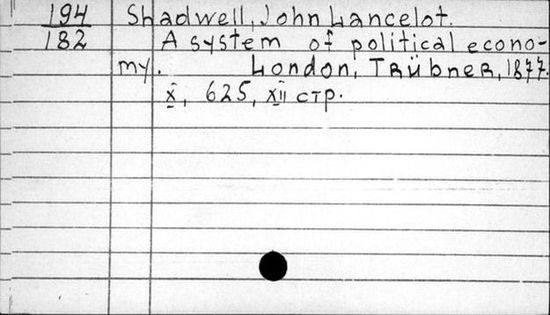 194 Shadwell, John Lancelot.
182 A system of political econo-
my. London, Trübner, 1877.
X, 625, XII стр.